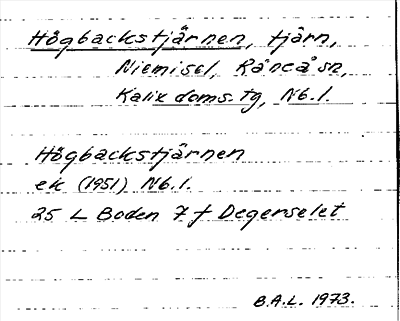 Högbackstjärnen, tjärn,
Niemisel, Råneå sn,
Kalix doms. tg, Nb. l.
Högbackstjärnen
ek (1951) Nb. l.
25 L Boden 7 f Degerselet
B.A.L. 1973.